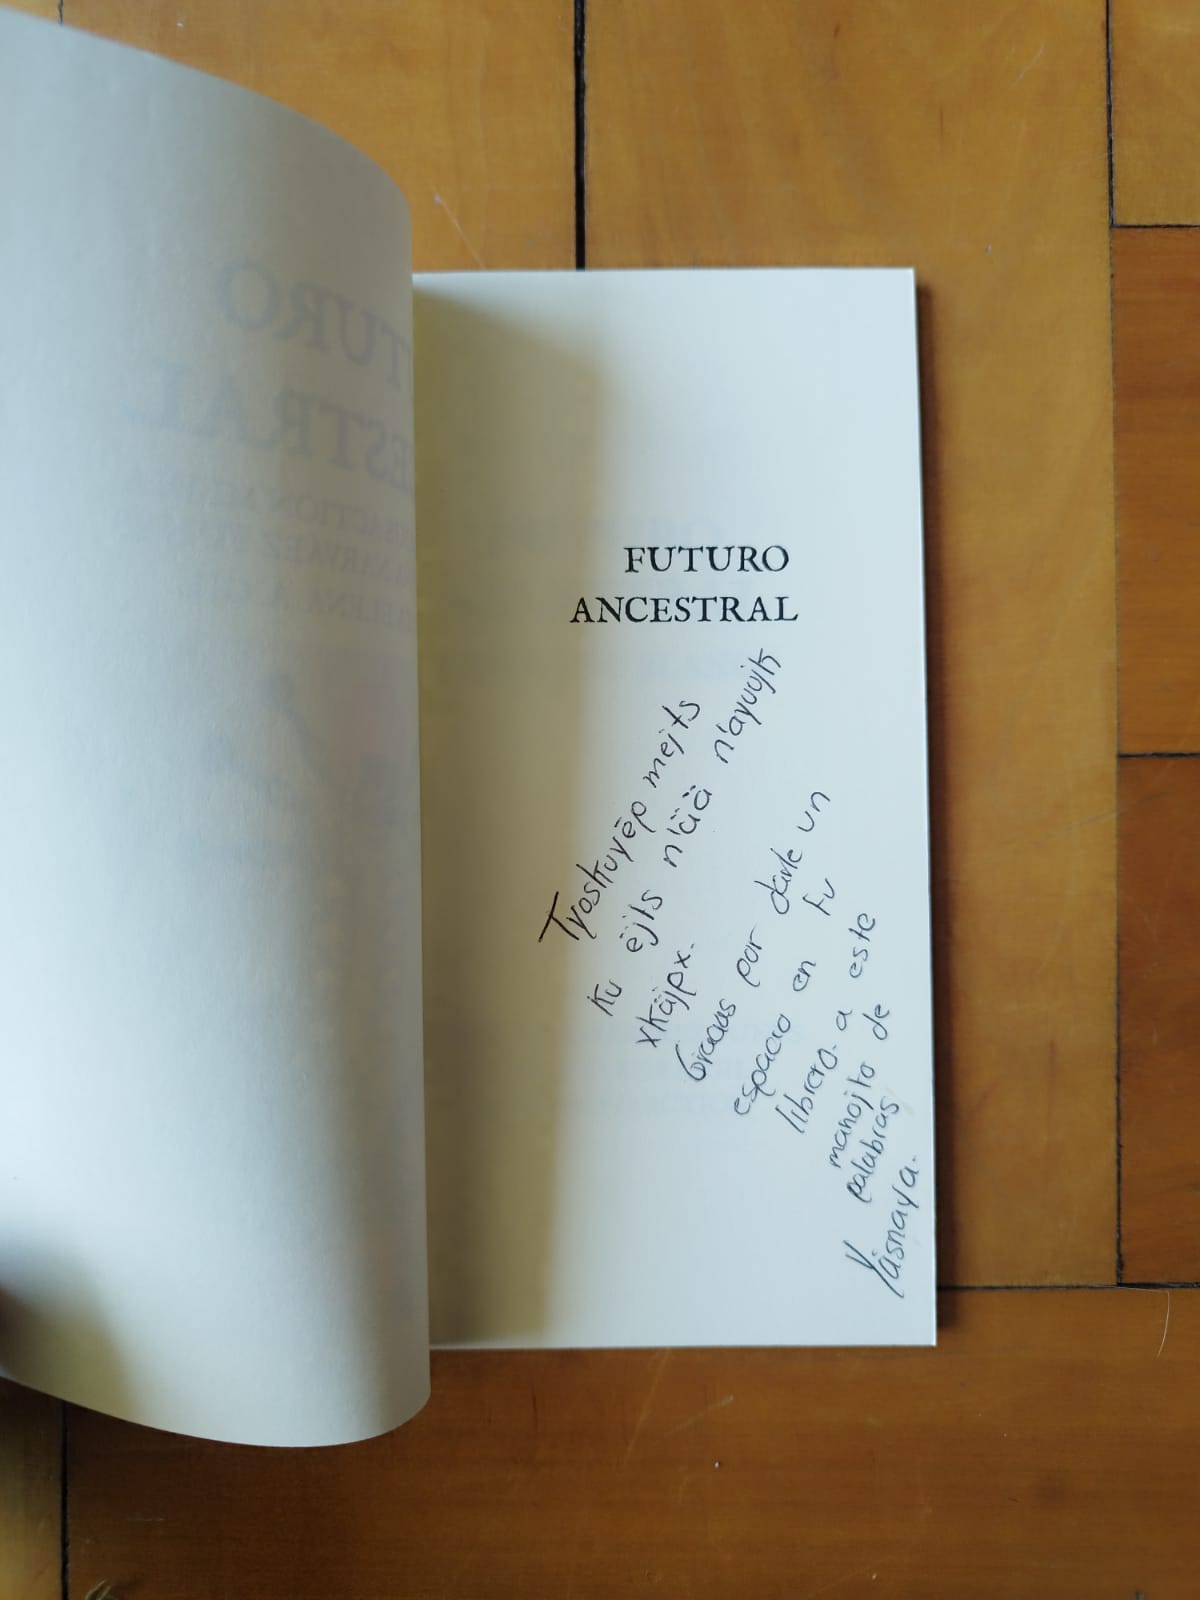 FUTURO
ANCESTRAL
Tyoskuyëp mejts
ku ëjts n'ää n'ayuujk
xkäjpx.
Gracias por darle un
espacio en tu
librero a este
manojito de
palabras
Yásnaya.